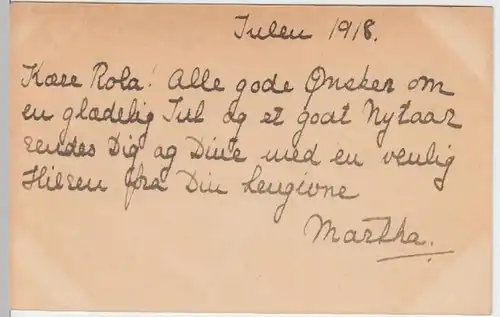 Julen 1918.
Kære Rola! Alle gode Ønsker om
en glædelig Jul og et godt Nytaar
sendes Dig og Dine med en venlig
Hilsen fra Din hengivne
Martha.